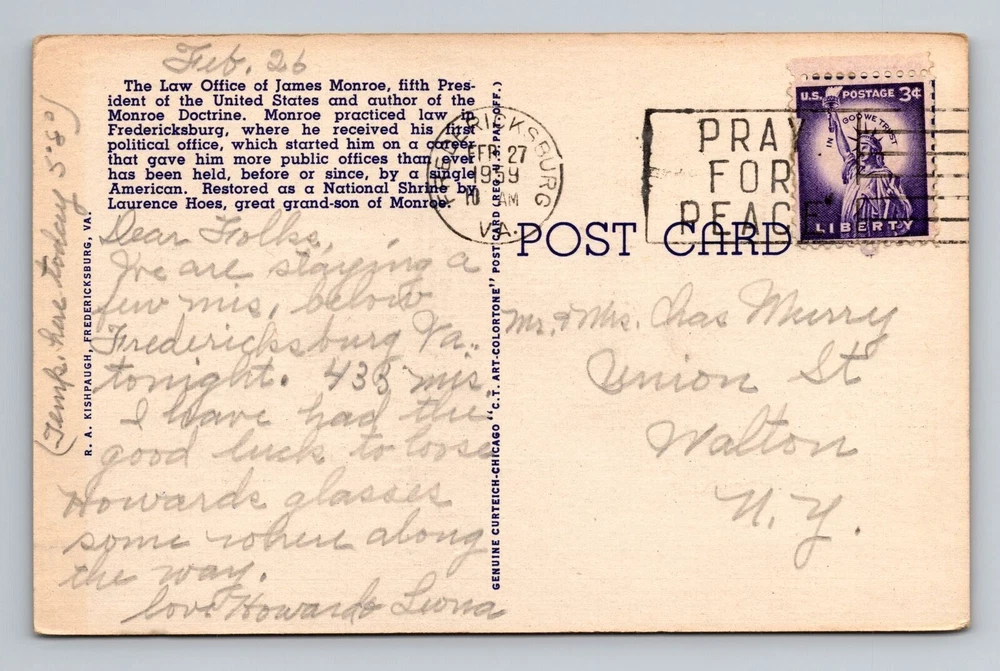 Feb. 26
The Law Office of James Monroe, fifth Pres-
ident of the United States and author of the
Monroe Doctrine. Monroe practiced law in
Fredericksburg, where he received his first
political office, which started him on a career
that gave him more public offices than ever
has been held, before or since, by a single
American. Restored as a National Shrine by
Laurence Hoes, great grand-son of Monroe.
Dear Folks,
We are staying a
few mis, below
Fredericksburg Va..
tonight. 435 mis.
I have had the
good luck to loose
Howards glasses
some where along
the way.
love Howard & Leona
(Temp. here today 58°)
R. A. KISHPAUGH, FREDERICKSBURG, VA.
GENUINE CURTEICH-CHICAGO "C.T. ART-COLORTONE" POST CARD (REG. U.S. PAT. OFF.)
FREDERICKSBURG
FEB 27
1959
10 AM
VA.
PRAY
FOR
PEACE
U.S. POSTAGE 3¢
IN GOD WE TRUST
LIBERTY
POST CARD
Mr. & Mrs. Chas Murry
Union St
Walton
N.Y.